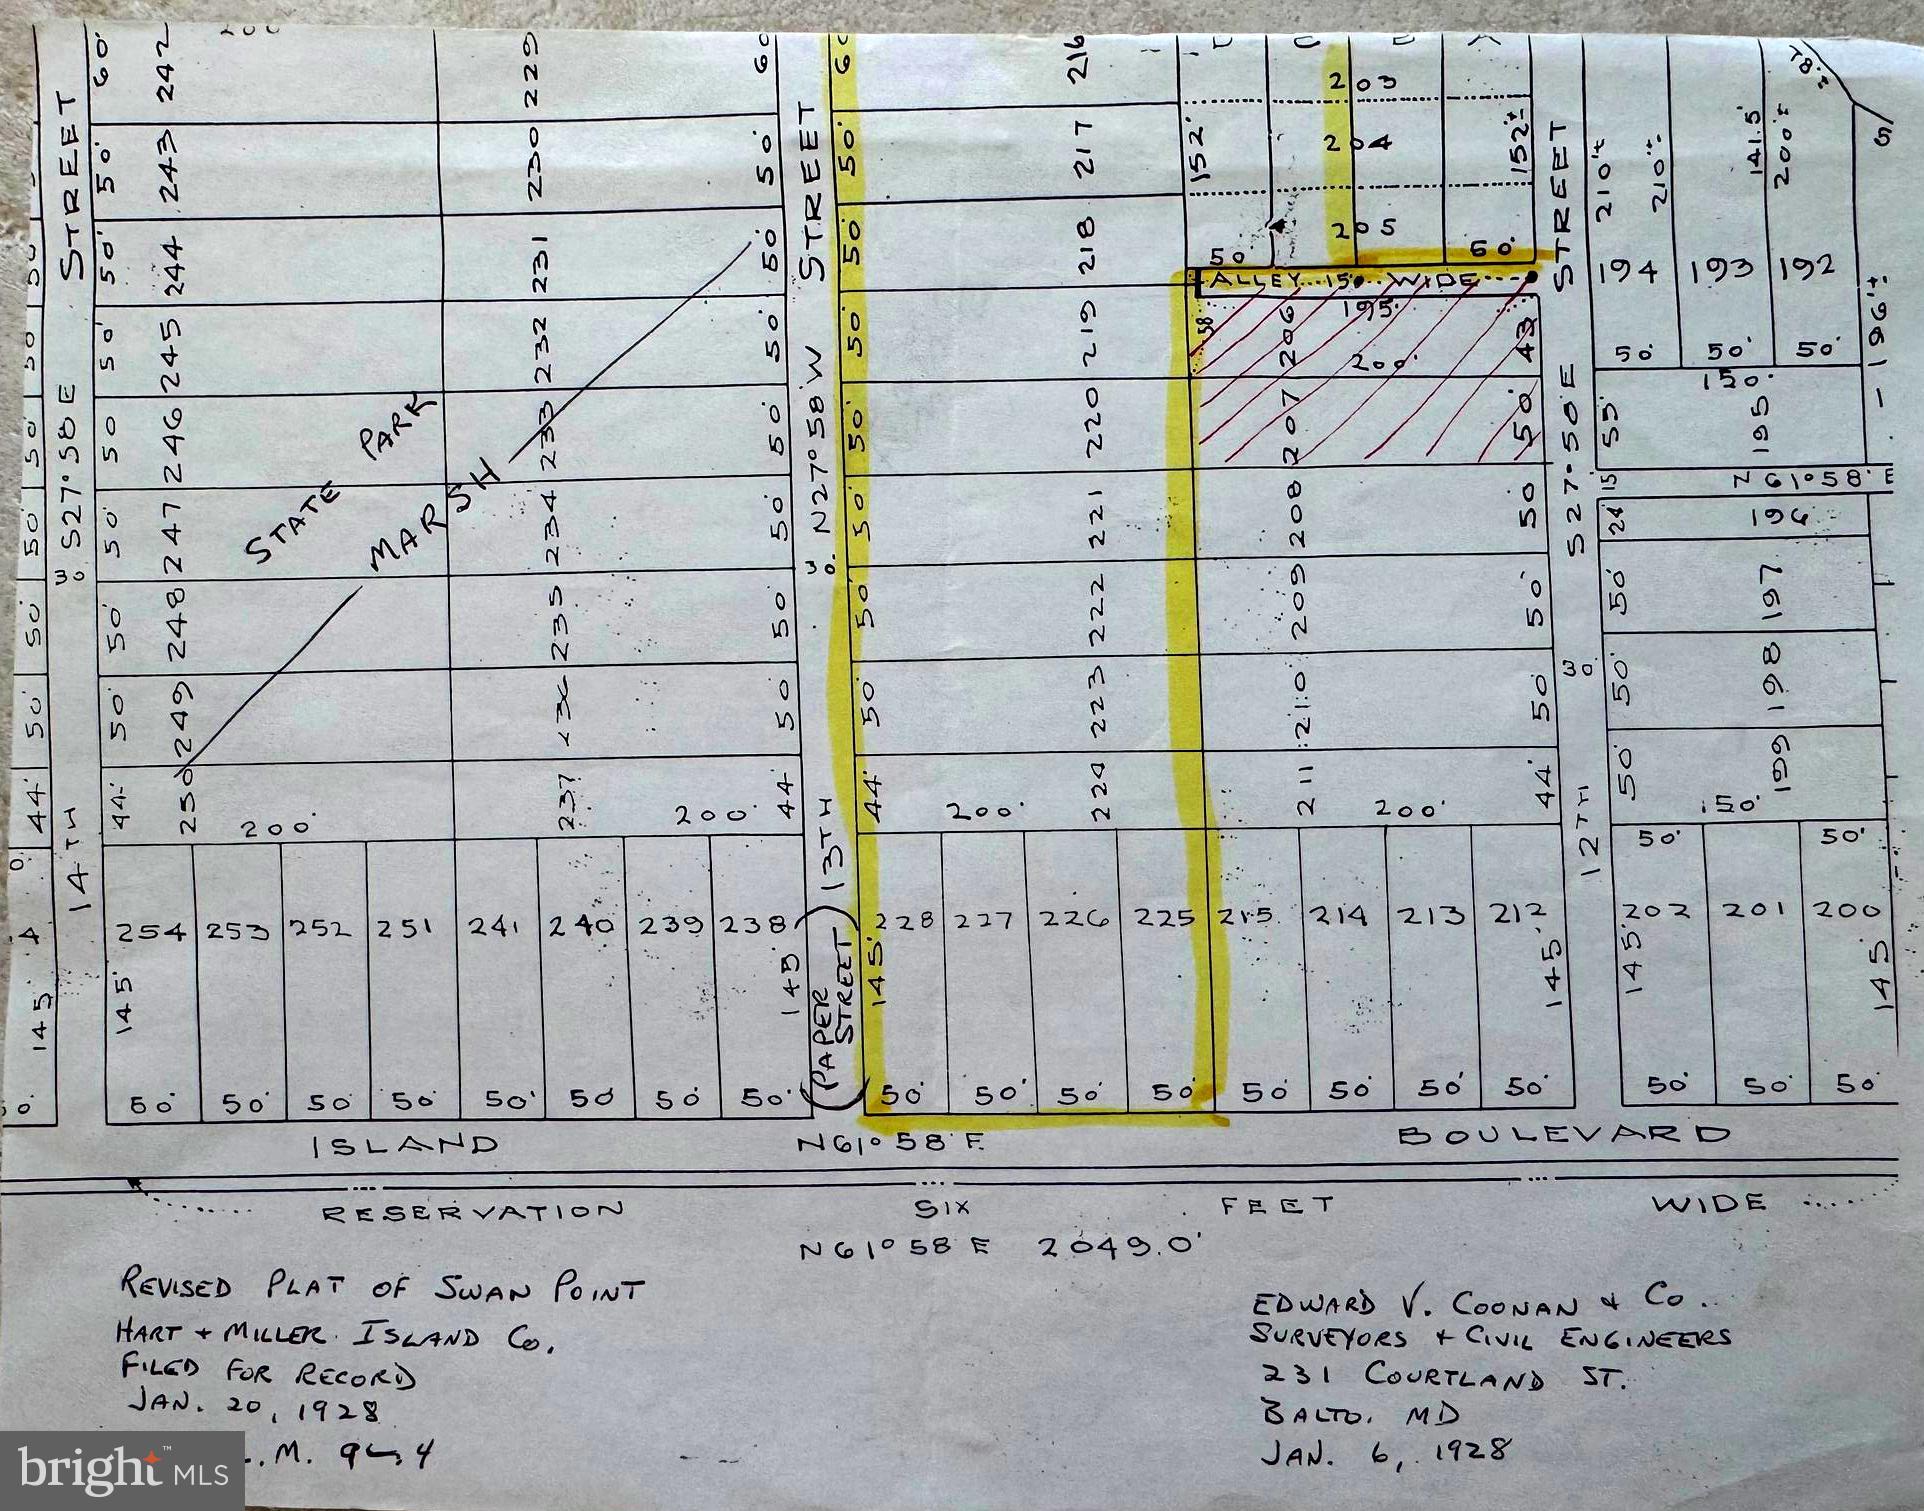 60' 242 229 60 60 216
203
50' 243 230 50' 50' 217 152' 204 152'± 210'± 210'± 141.5' 200'±
50' 244 231 50' 50' 218 205
50' 50'
ALLEY 15' WIDE
194 193 192
50' 245 232 50' 50' 219 58 206 195 43 50' 50' 50'
200'
150'
50' 246 233 50' 50' 220 207 50' 55' 195
STATE PARK
MARSH
N 61° 58' E
15
50' 247 234 50' 50' 221 208 50 24 196
50' 248 235 50' 50' 222 209 50' 50' 197
50' 249 50' 50' 223 210 50 50' 198
44' 250 237 44' 44' 224 211 44' 50' 199
200' 200' 200' 200' 150'
50' 50'
14TH STREET
S27° 58 E
30
13TH STREET
N27° 58' W
30
12TH STREET
S27° 50' E
30
196'±
254 253 252 251 241 240 239 238 228 227 226 225 215 214 213 212 202 201 200
145' 145' 145' 145' 145' 145
(PAPER STREET)
50' 50' 50 50' 50' 50' 50' 50' 50' 50' 50' 50' 50' 50' 50' 50' 50' 50' 50'
ISLAND N61° 58' E BOULEVARD
RESERVATION SIX FEET WIDE
N61° 58 E 2049.0'
REVISED PLAT OF SWAN POINT
HART + MILLER ISLAND CO.
FILED FOR RECORD
JAN. 20, 1928
EDWARD V. COONAN & CO.
SURVEYORS + CIVIL ENGINEERS
231 COURTLAND ST.
BALTO. MD
JAN. 6, 1928
bright MLS